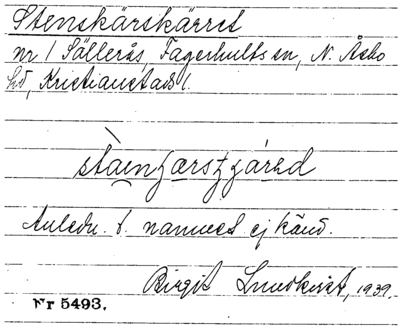 Stenskärskärret
nr 1 Sällerås, Fagerhults sn, N. Åsbo
hd, Kristianstads l.
Anledn. t. namnet ej känd.
Birgit Lundkvist, 1939.
Nr 5493.